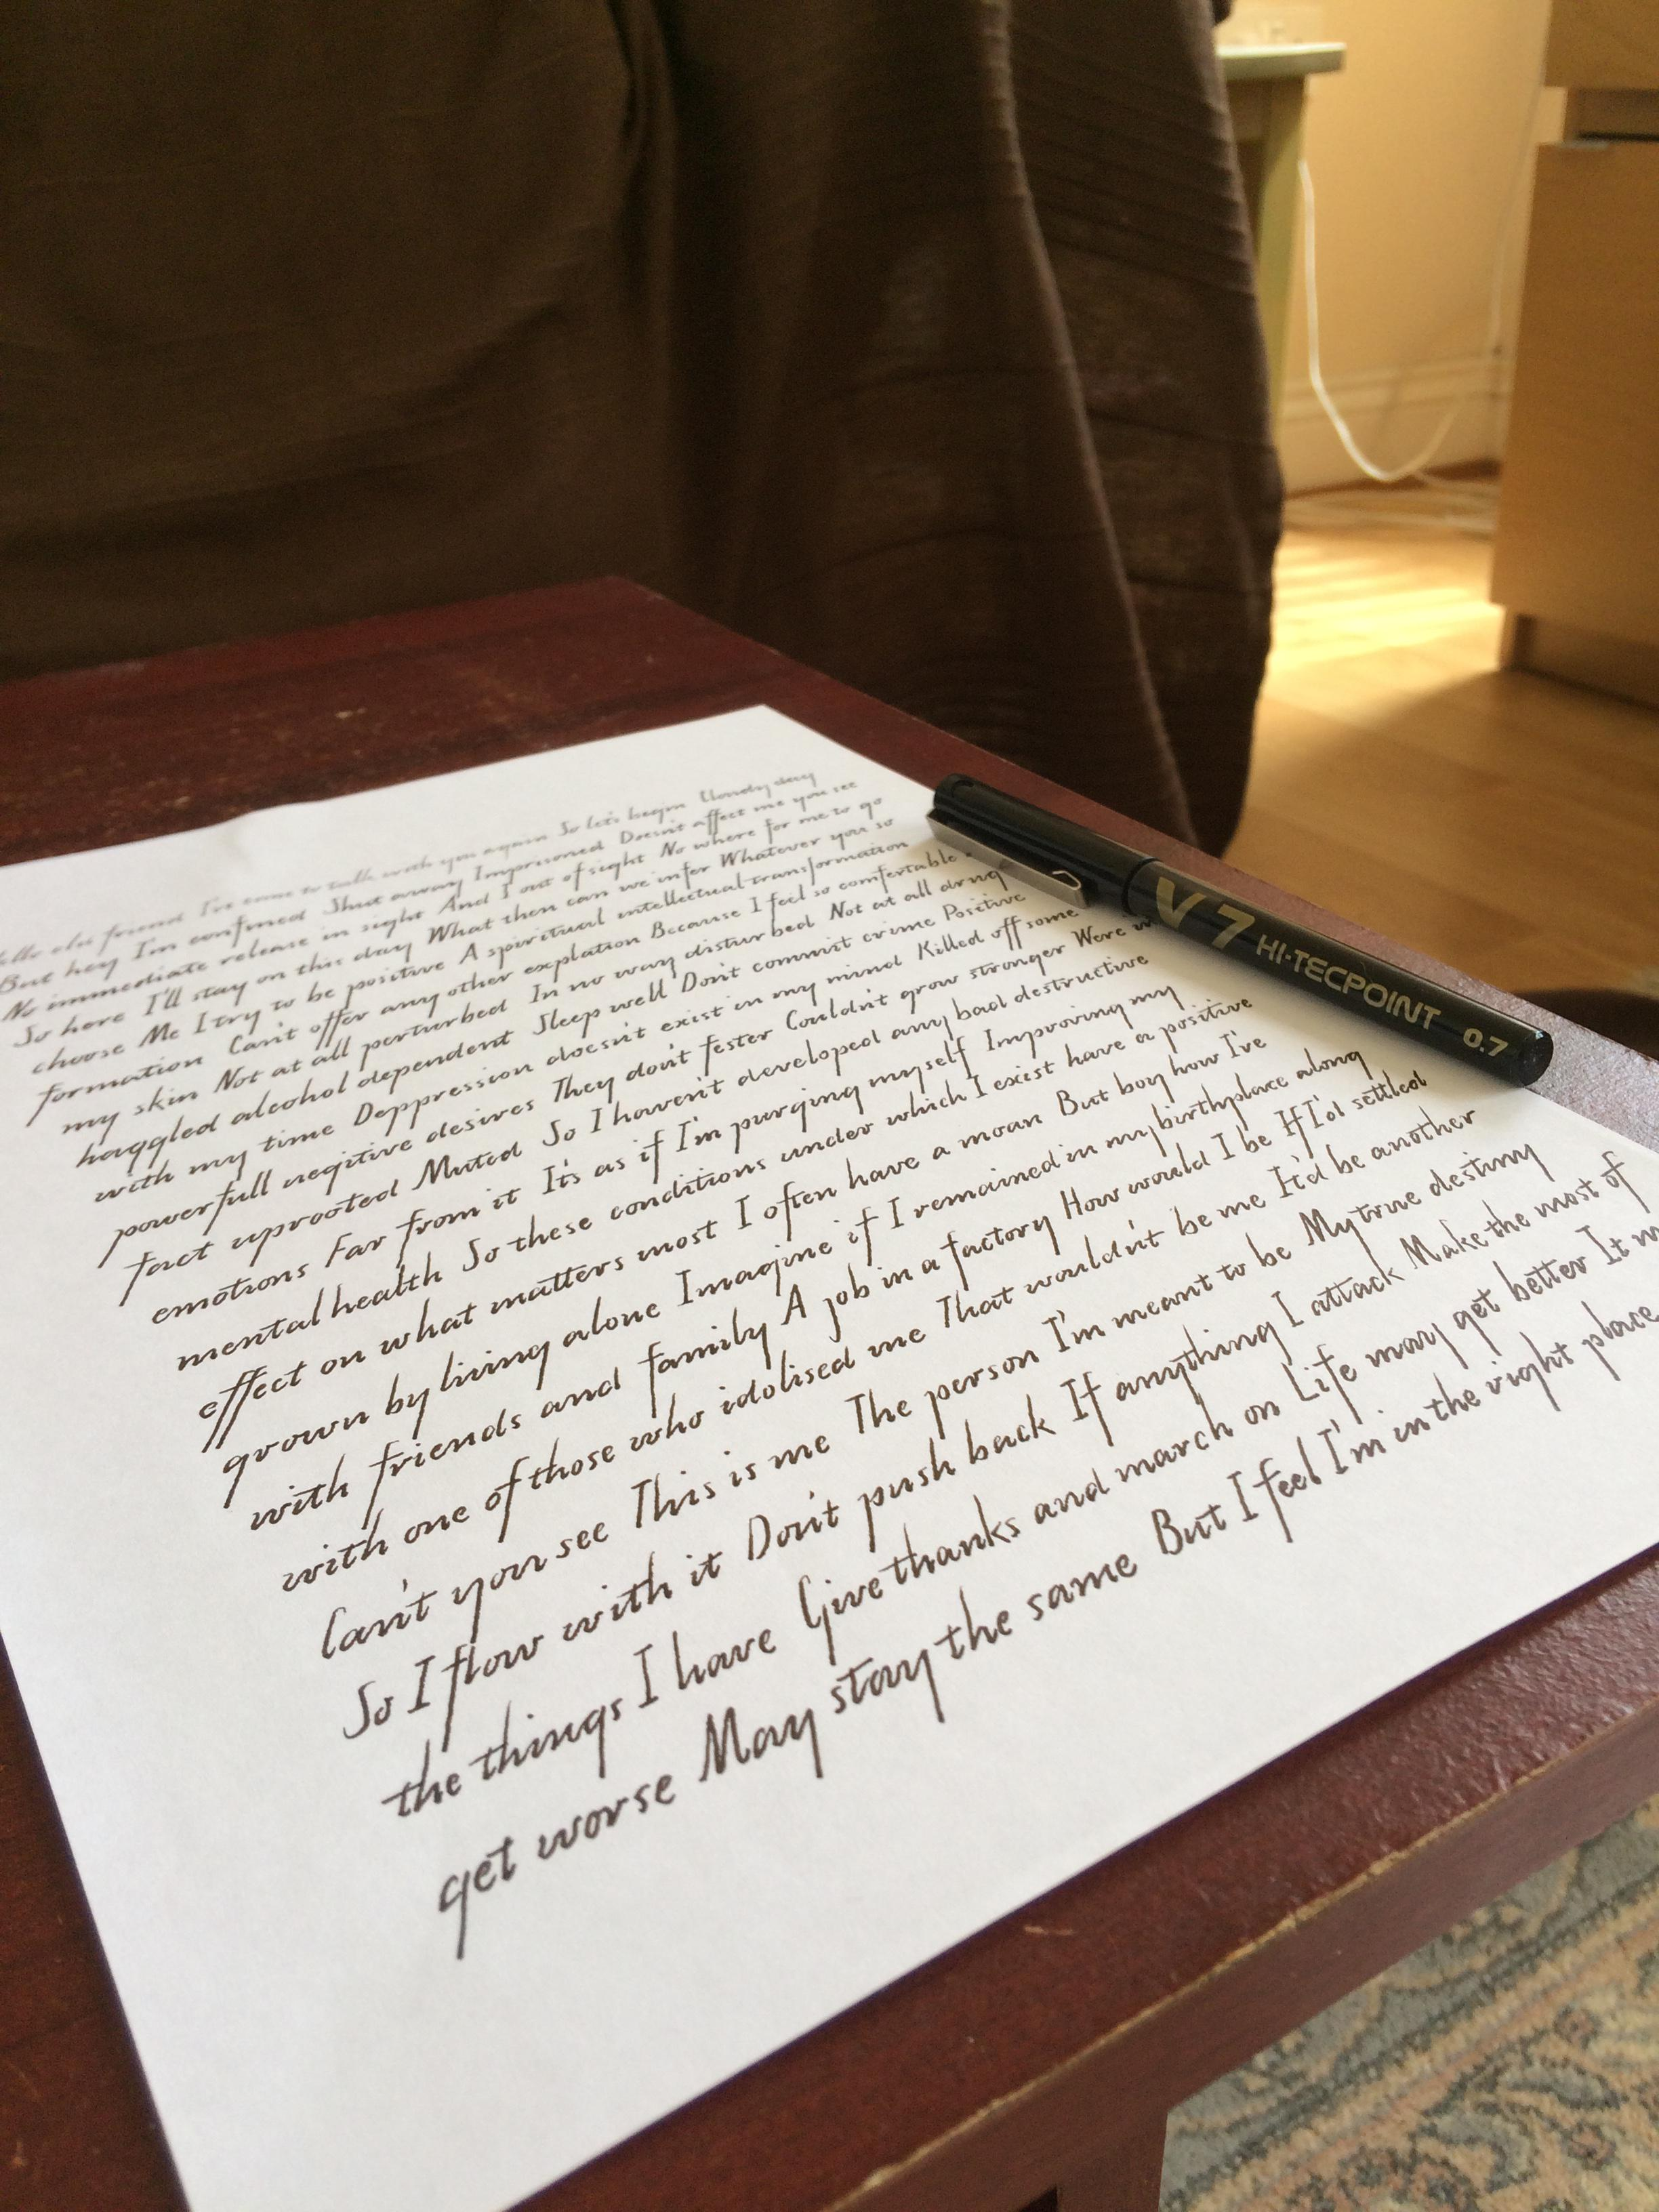 Hello old friend I've come to talk with you again So let's begin Cloudy day
But hey I'm confined Shut away Imprisoned Doesn't affect me you see
No immediate release in sight And I out of sight No where for me to go
So here I'll stay on this day What then can we infer Whatever you so
choose Me I try to be positive A spiritual intellectual transformation
formation Can't offer any other explation Because I feel so comfortable
my skin Not at all perturbed In no way disturbed Not at all drug
haggled alcohol dependent Sleep well Don't commit crime Positive
with my time Deppression doesn't exist in my mind Killed off some
powerfull negitive desires They don't fester Couldn't grow stronger Were in
fact uprooted Muted So I haven't developed any bad destructive
emotions Far from it It's as if I'm purging myself Improving my
mental health So these conditions under which I exist have a positive
effect on what matters most I often have a moan But boy how I've
grown by living alone Imagine if I remained in my birthplace along
with friends and family A job in a factory How would I be If I'd settled
with one of those who idolised me That wouldn't be me It'd be another
Can't you see This is me The person I'm meant to be My true destiny
So I flow with it Don't push back If anything I attack Make the most of
the things I have Give thanks and march on Life may get better It
get worse May stay the same But I feel I'm in the right place
V7 HI-TECPOINT 0.7